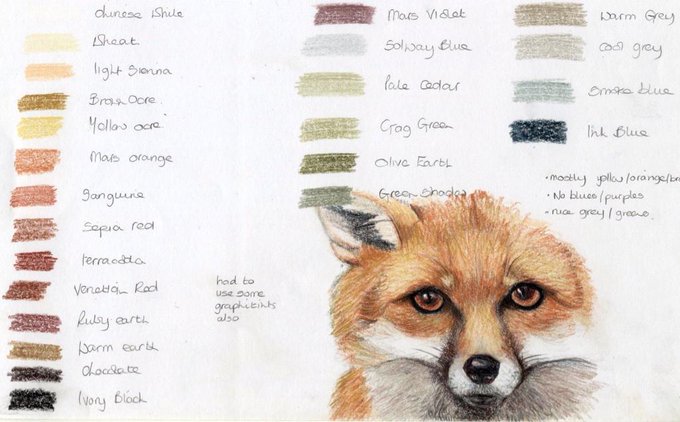 Chinese White
Wheat
light Sienna
Brown Ocre.
Yellow ocre.
Mars orange
Sanguine
Sepia red
terracotta
Venetian Red
Ruby earth
Warm earth
Chocolate
Ivory Black
had to
use some
graphitints
also
Mars Violet
Solway Blue
Pale Cedar
Crag Green
Olive Earth
Green Shadow
Warm Grey
Cool grey
Smoke blue
Ink Blue
• mostly yellow/orange/br
• No blues/purples
• nice grey/greens.